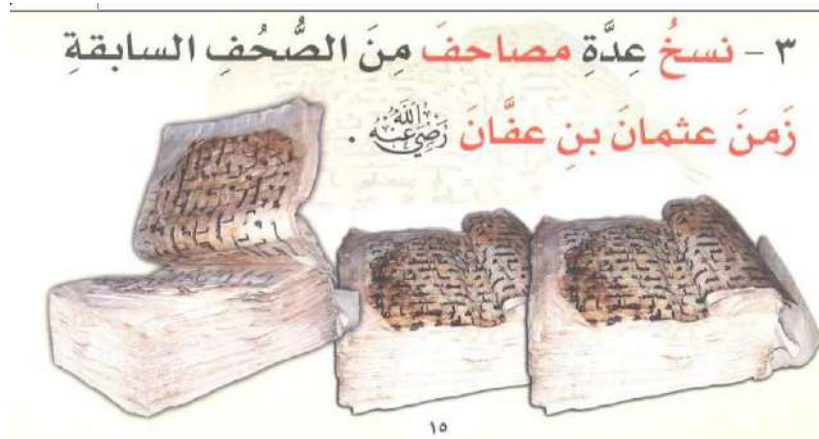 ٣ - نسخُ عِدَّةِ مصاحفَ مِنَ الصُّحُفِ السابقةِ
زَمنَ عثمانَ بنِ عفَّانَ رَضِيَ اللَّهُ عَنْهُ .
١٥